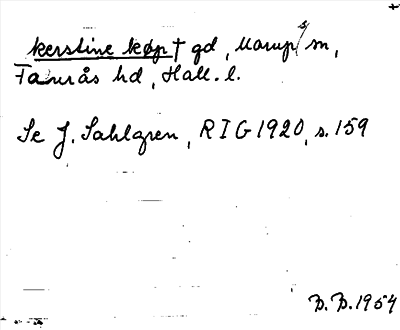 kerstine køp † gd, Morups sn,
Faurås hd, Hall. l.
Se J. Sahlgren, RIG 1920, s. 159
B. B. 1954